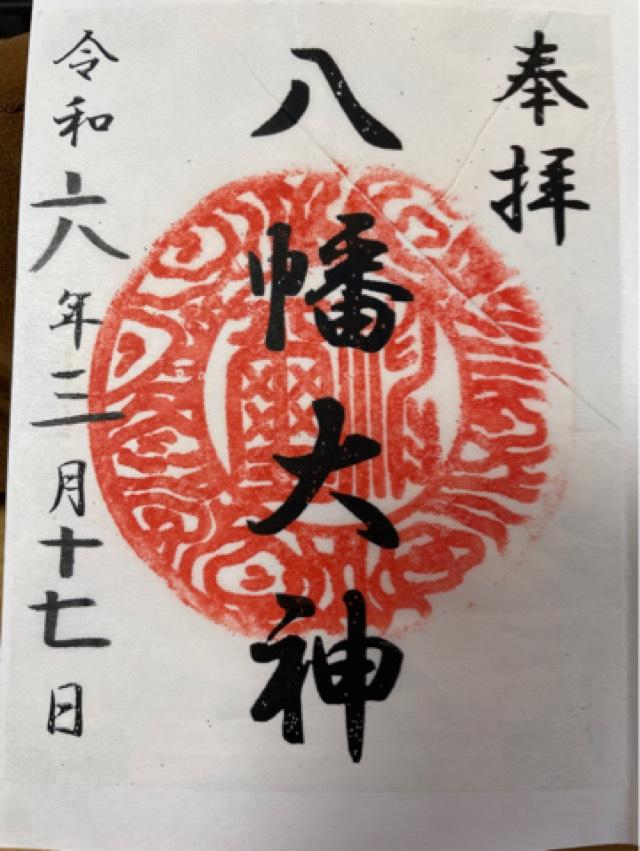 奉拝
八幡大神
令和六年三月十七日